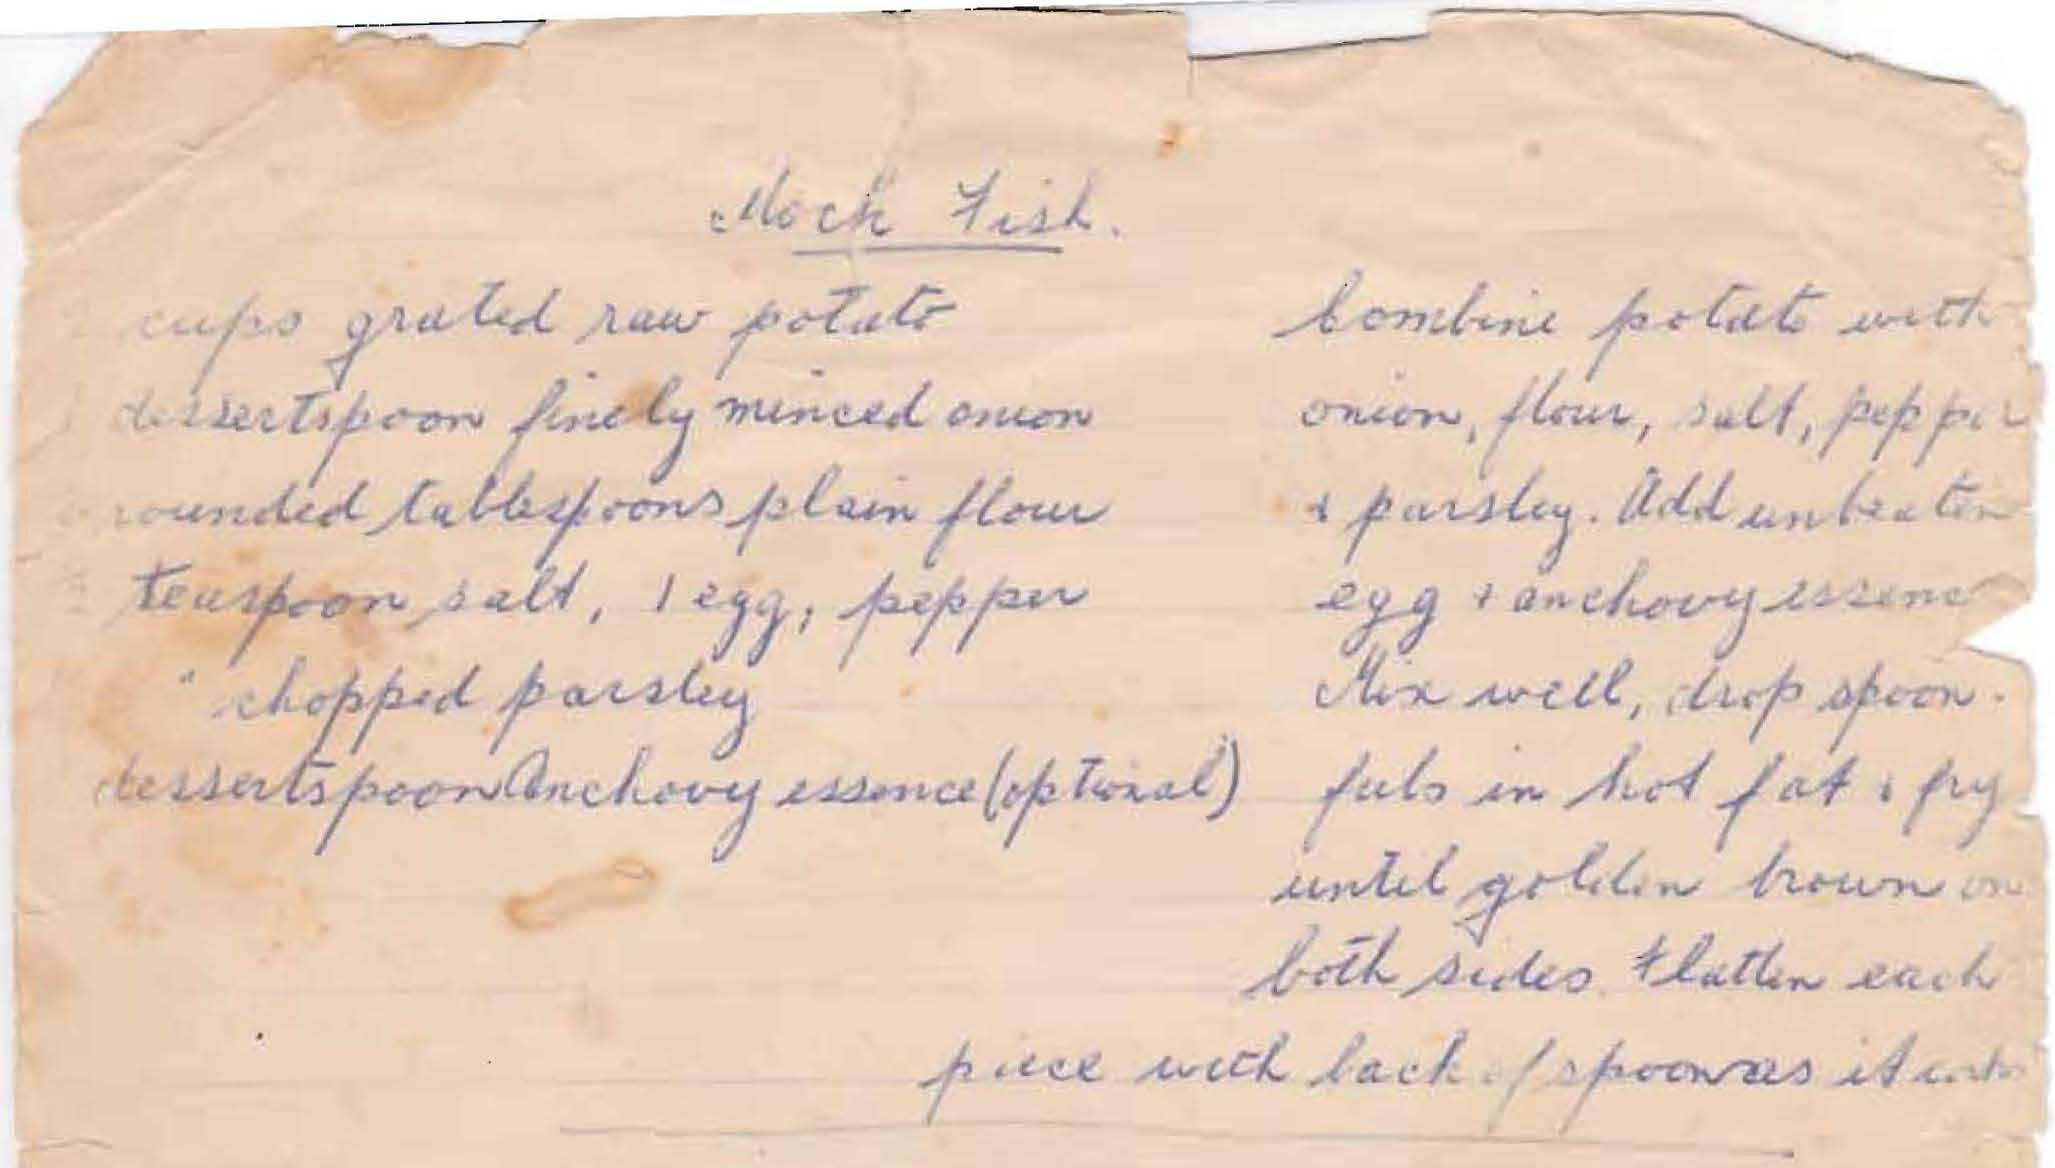 Mock Fish.
cups grated raw potato
dessertspoon finely minced onion
rounded tablespoons plain flour
teaspoon salt, 1 egg, pepper
" chopped parsley
dessertspoon Anchovy essence (optional)
Combine potato with
onion, flour, salt, pepper
& parsley. Add unbeaten
egg & anchovy essenc
Mix well, drop spoon-
fuls in hot fat & fry
until golden brown on
both sides. Flatten each
piece with back of spoon as it